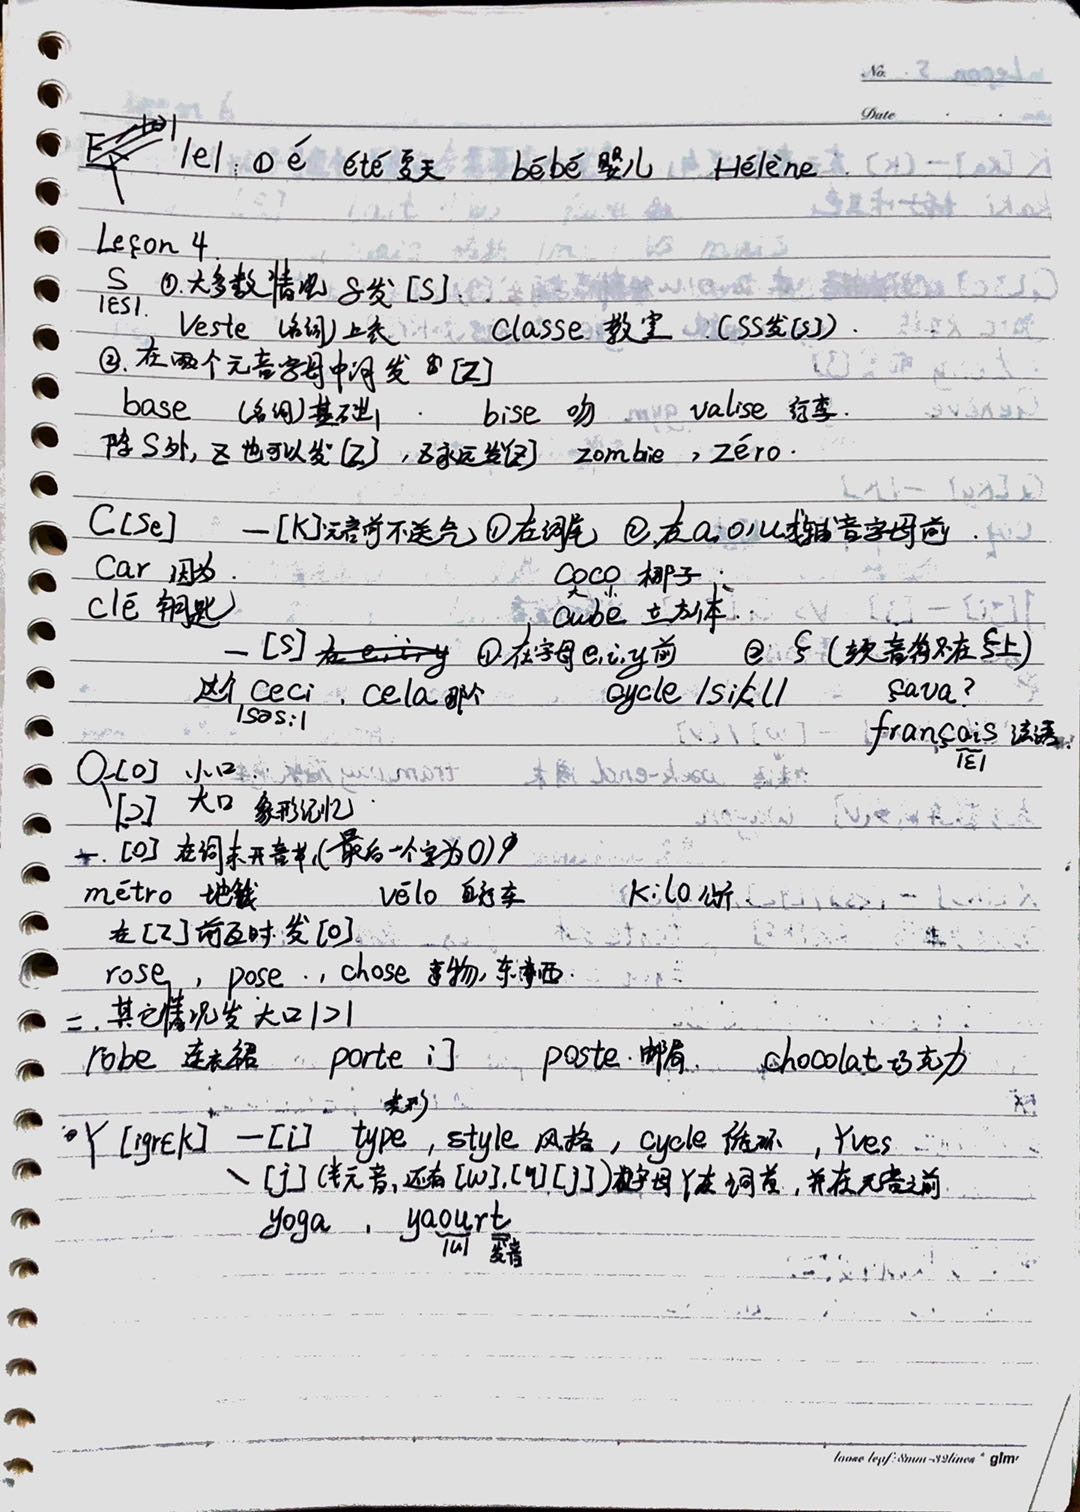 No.
Date
E |e| : ① é été 夏天 bébé 婴儿 Hélène
Leçon 4
S ①.大多数情况 S发 [S].
|ES|.
Veste (名词)上衣 Classe 教室 . (SS发[S]).
②.在两个元音字母中间发 [Z]
base (名词)基础 . bise 吻 valise 行李.
除S外, Z 也可以发 [Z] , Z永远发[Z] zombie , zéro.
C[Se] —[K]元音前不送气 ①在词尾 ②.在a,o,u或辅音字母前 .
Car 因为. coco 椰子.
大 小
clé 钥匙 cube 立方体.
— [S] 在 e,i,y ①在字母e,i,y前 ② ç (软音符不在ç上)
这个 ceci . cela 那个 cycle |sikl| çava?
|səsi| français 法语.
|ɛ|
O [o] 小口
[ɔ] 大口 象形记忆.
一. [o] 在词末开音节,(最后一个字为O)
métro 地铁 vélo 自行车 kilo 公斤
在[Z]前面时.发[o]
rose , pose . , chose 事物,东西.
二.其它情况发大口|ɔ|
robe 连衣裙 porte 门 poste.邮局. chocolat 巧克力
类形
Y [igrɛk] —[i] type , style 风格 , cycle 循环 , Yves
[j] (半元音,还有[w],[ɥ][j])在字母Y在词首,并在元音之前
yoga , yaourt
|u| 发音
loose leaf:8mm-32lines * glm